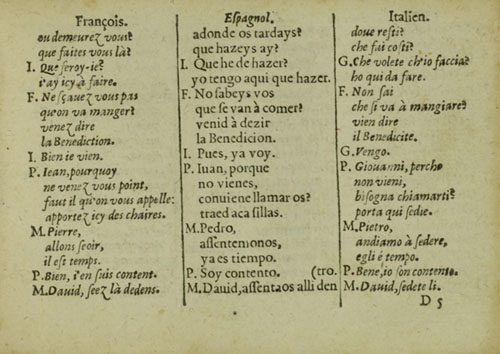 François.
ou demeurez vous?
que faites vous là?
I. Que feroy-ie?
i'ay icy à faire.
F. Ne sçauez vous pas
qu'on va manger?
venez dire
la Benediction.
I. Bien ie vien.
P. Iean, pourquoy
ne venez vous point,
faut il qu'on vous appelle:
apportez icy des chaires.
M. Pierre,
allons seoir,
il est temps.
P. Bien, i'en suis content.
M. Dauid, seez là dedens.
Espagnol.
adonde os tardays?
que hazeys ay?
I. Que he de hazer?
yo tengo aqui que hazer.
F. No sabeys vos
que se van à comer?
venid à dezir
la Benedicion.
I. Pues, ya voy.
P. Iuan, porque
no vienes,
conuiene llamar os?
traed aca sillas.
M. Pedro,
assentemonos,
ya es tiempo.
P. Soy contento. (tro.
M. Dauid, assentaos alli den
Italien.
doue resti?
che fai costi?
G. Che volete ch'io faccia?
ho qui da fare.
F. Non sai
che si va à mangiare?
vien dire
il Benedicite.
G. Vengo.
P. Giouanni, perche
non vieni,
bisogna chiamarti?
porta qui sedie.
M. Pietro,
andiamo à sedere,
egli é tempo.
P. Bene, io son contento.
M. Dauid, sedete li.
D 5